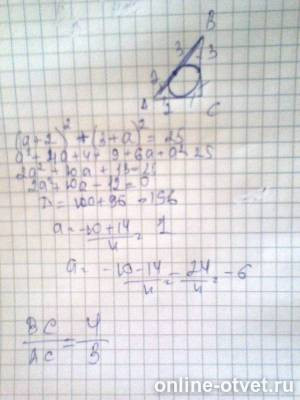 B
3
3
2
A
2
C
(a+2)² + (3+a)² = 25
a²+4a+4+9+6a+a²=25
2a²+10a+13=25
2a²+10a-12=0
D=100+96=196
a=-10+14/4=1
a=-10-14/4=-24/4=-6
BC/AC=4/3
online-otvet.ru